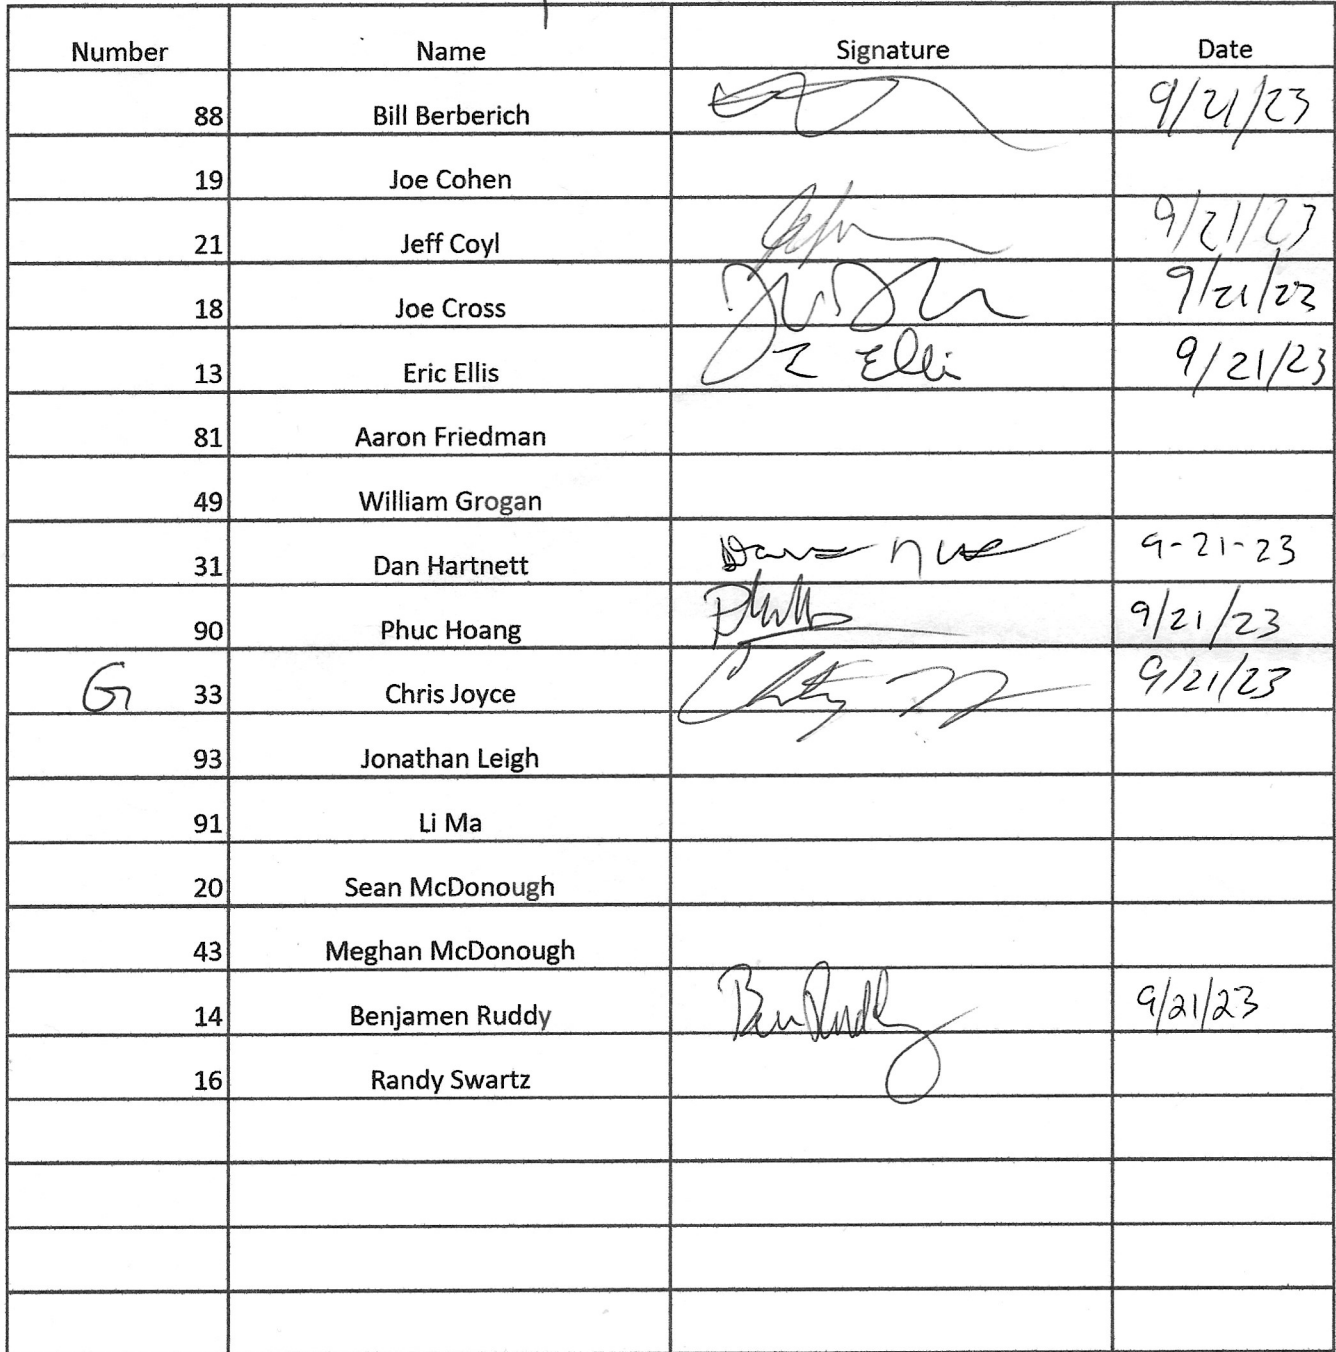 Number Name Signature Date
88 Bill Berberich 9/21/23
19 Joe Cohen
21 Jeff Coyl 9/21/23
18 Joe Cross 9/21/23
13 Eric Ellis E Elli 9/21/23
81 Aaron Friedman
49 William Grogan
31 Dan Hartnett 9-21-23
90 Phuc Hoang 9/21/23
G 33 Chris Joyce 9/21/23
93 Jonathan Leigh
91 Li Ma
20 Sean McDonough
43 Meghan McDonough
14 Benjamen Ruddy Ben Ruddy 9/21/23
16 Randy Swartz